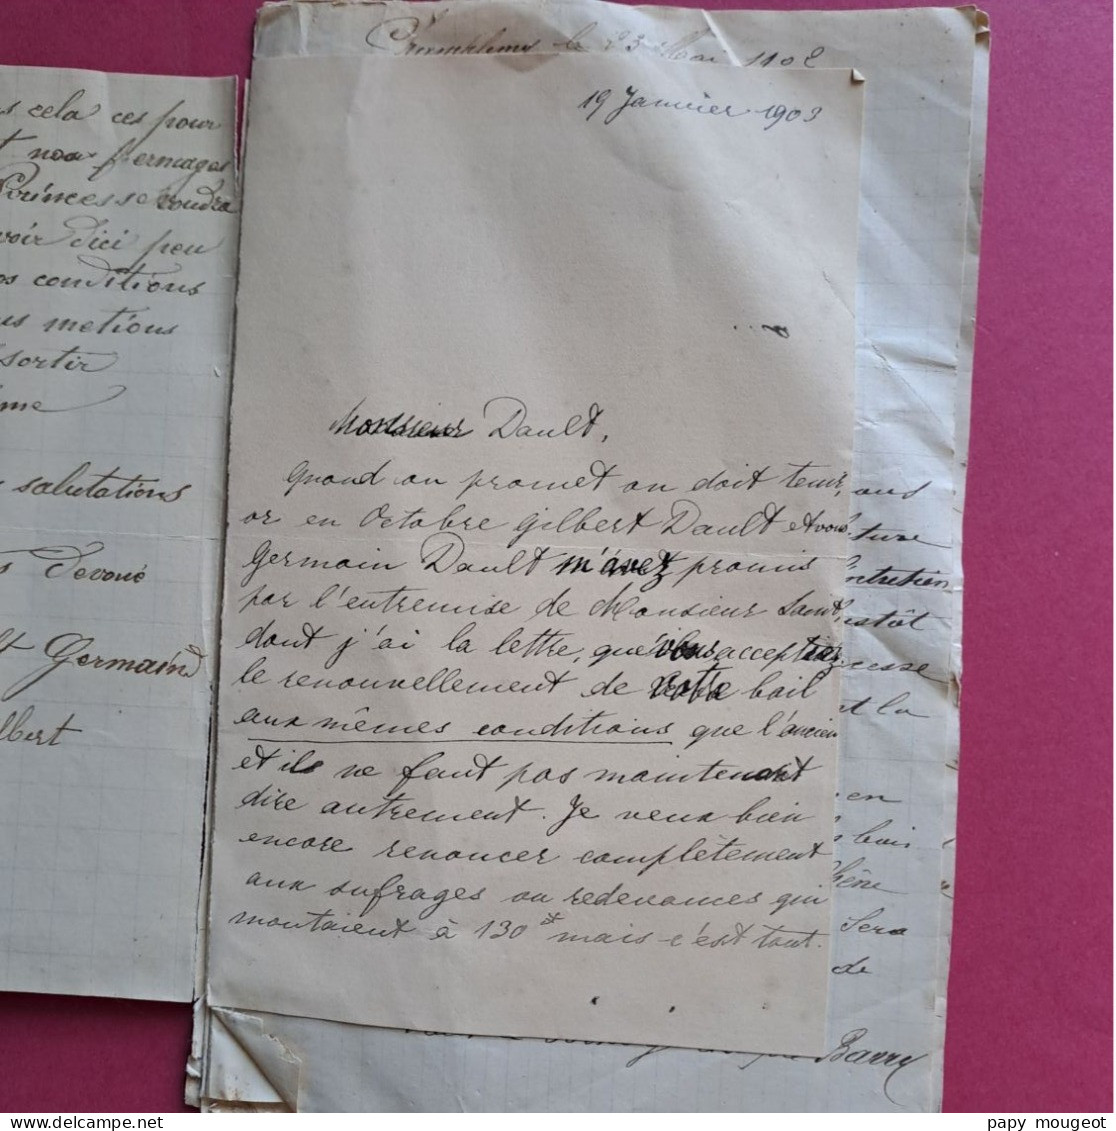 s cela ces pour
nos fermages
Princesse voudra
voir dici peu
os conditions
us metions
sortir
ime
salutations
s Devoué
lt Germain
lbert
le 23 Mai 1902
19 Janvier 1903
Monsieur Dault,
Quand on promet on doit tenir,
or en Octobre Gilbert Dault et vous
Germain Dault m'avez promis
par l'entremise de Monsieur
dont j'ai la lettre, que vous acceptiez
le renouvellement de votre bail
aux mêmes conditions que l'ancien
et il ne faut pas maintenant
dire autrement. Je veux bien
encore renoncer complètement
aux sufrages ou redevances qui
montaient à 130 ff mais c'est tout.
ous
ture
entretien
istôt
cesse
et la
en
bois
chêne
Sera
de
Barry
papy mougeot